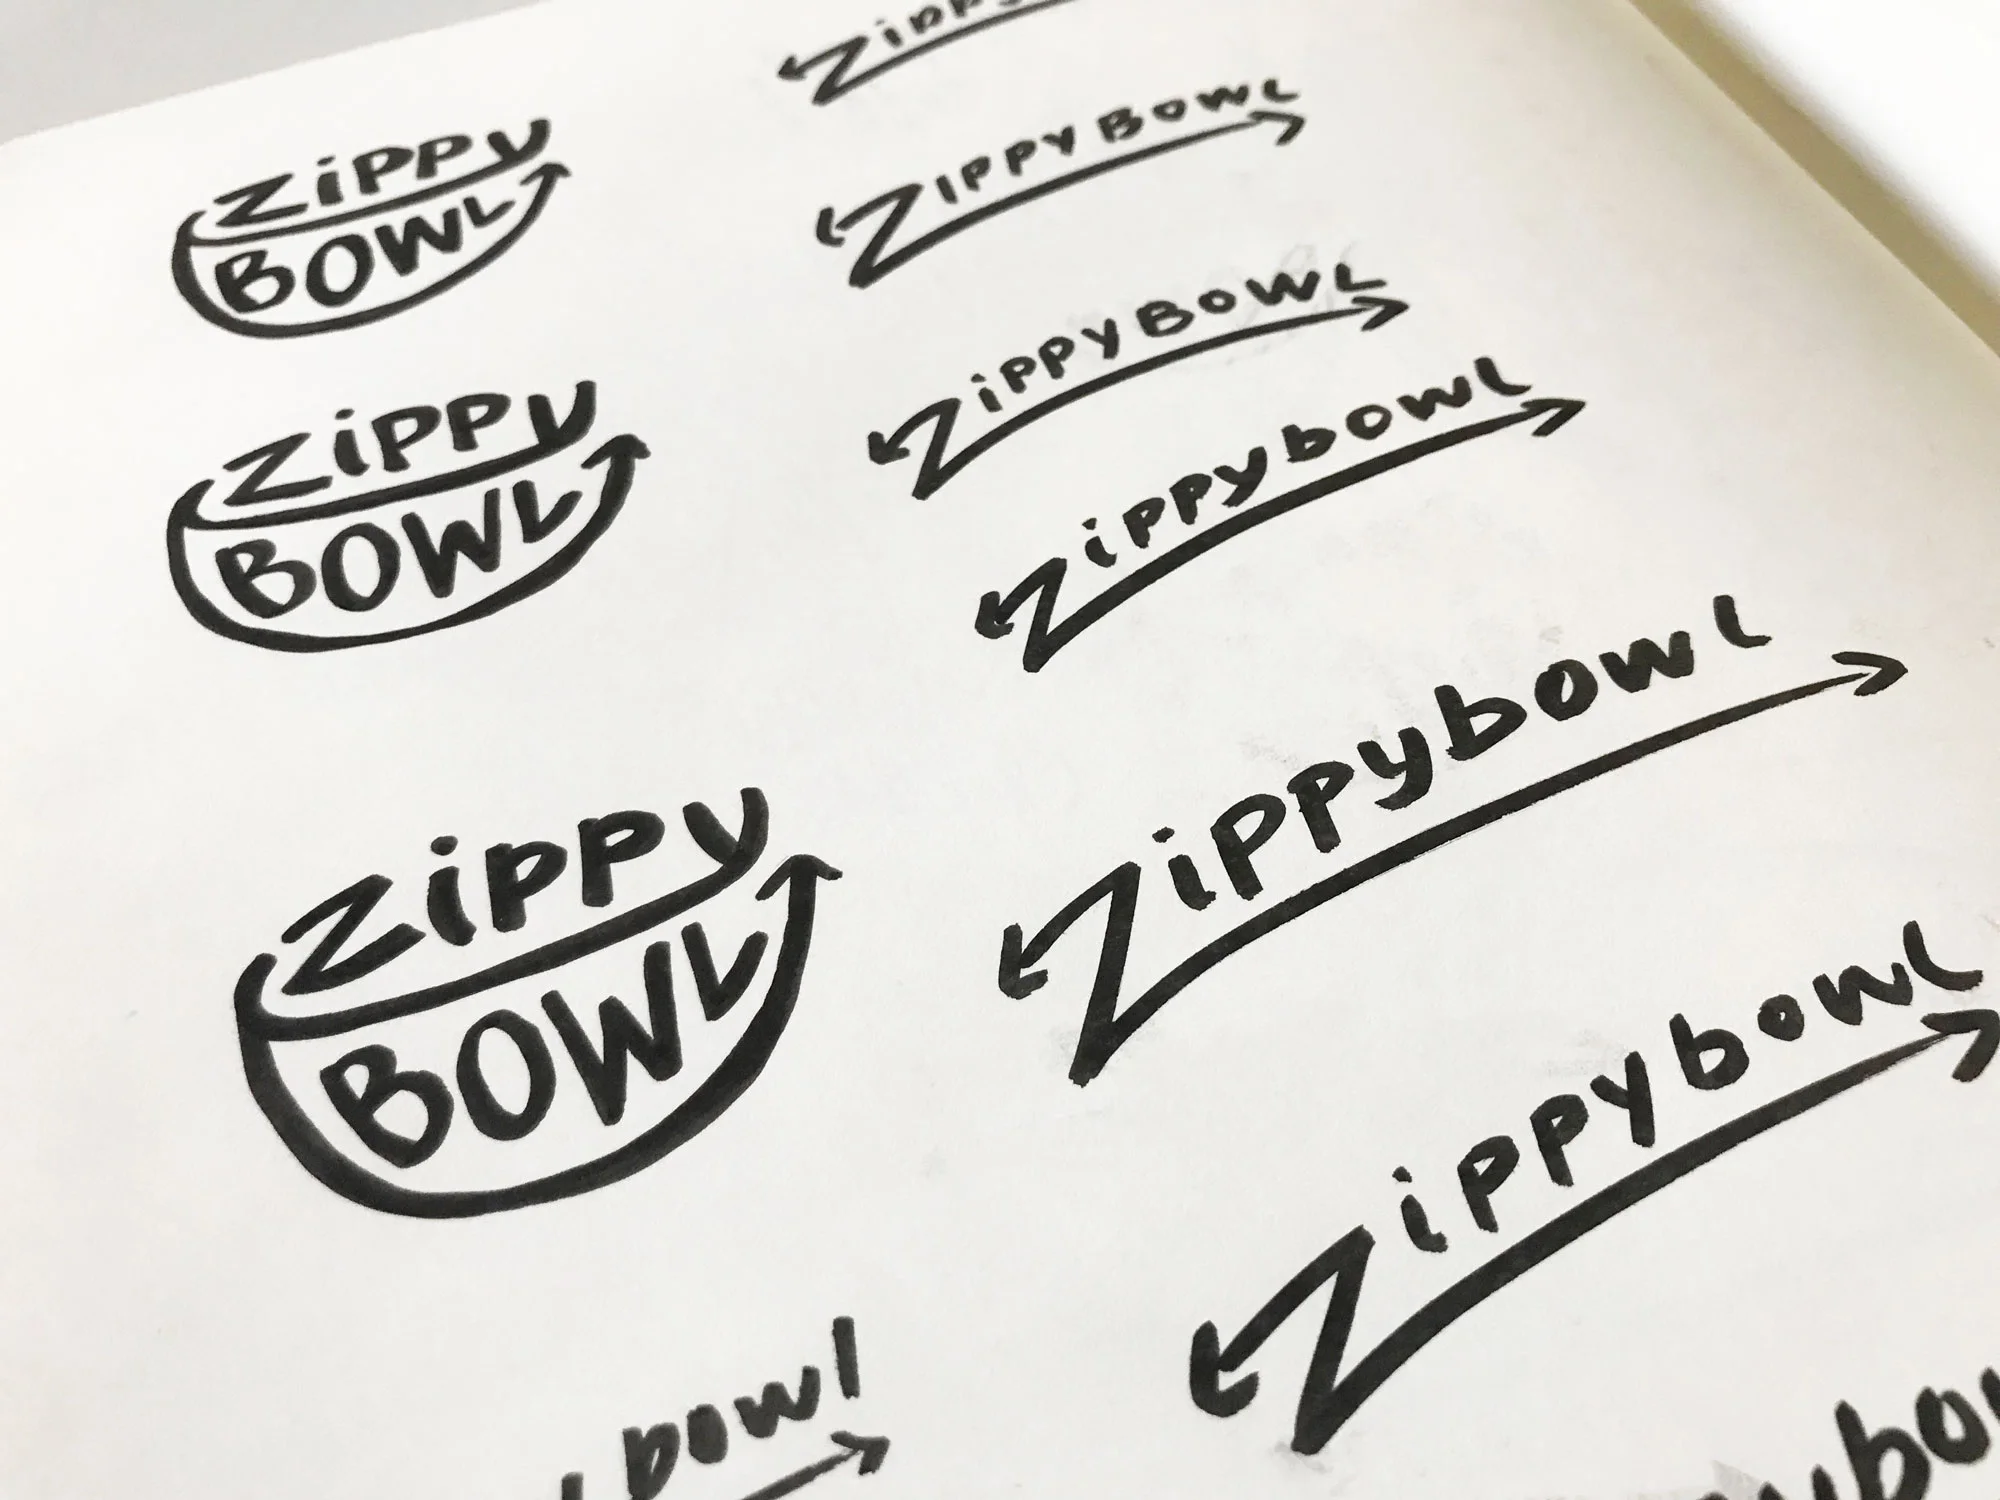 Zippy
BOWL
Zippy
BOWL
Zippy
BOWL
bowl
Zippy
ZIPPY BOWL
ZiPPY BOWL
Zippy bowl
Zippybowl
Zippybowl